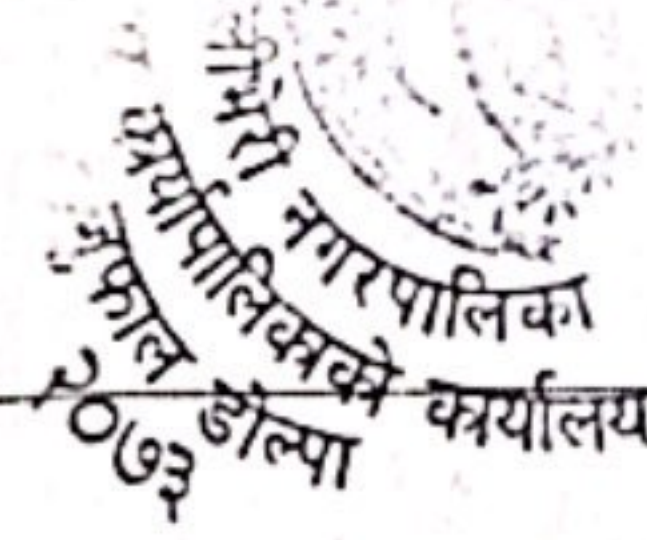 नगरपालिका
कार्यपालिकाको कार्यालय
डोल्पा
२०७३